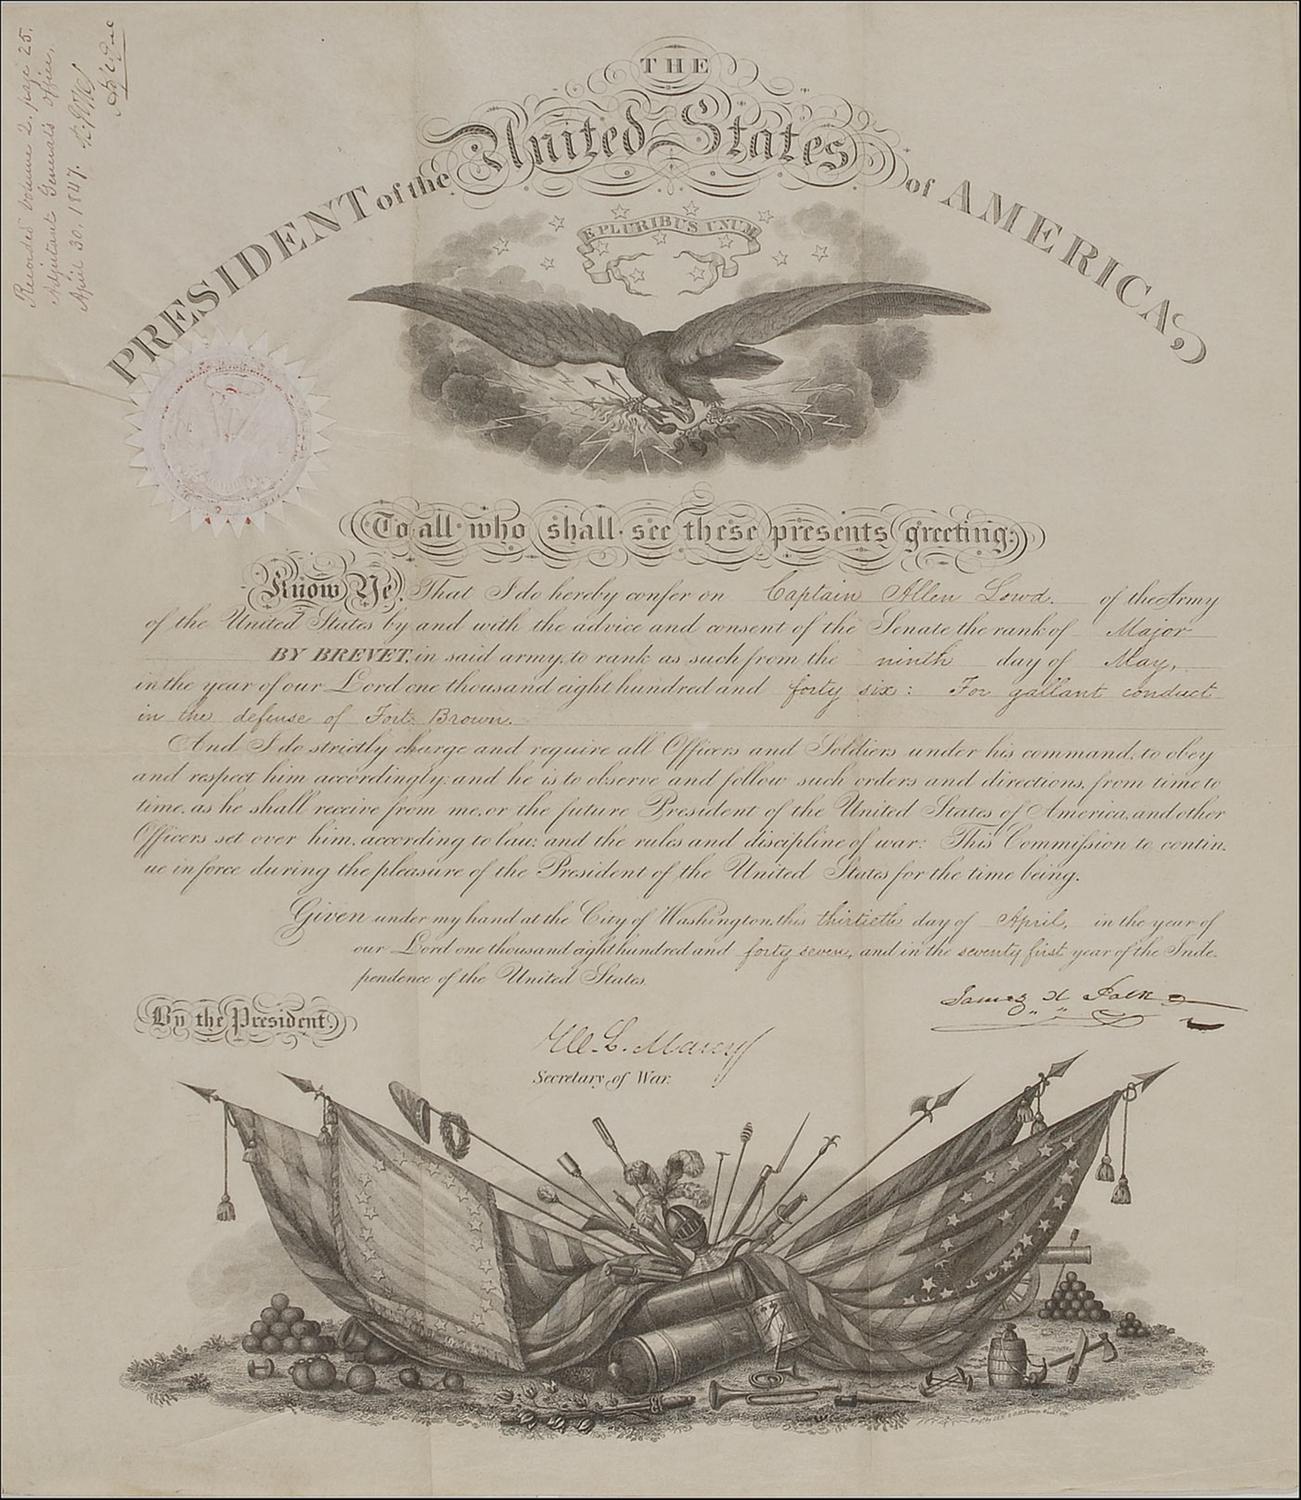 Recorded Volume 2, page 25.
Adjutant General's office,
April 30. 1847.
THE
United States
PRESIDENT of the of AMERICA,
E PLURIBUS UNUM
To all who shall see these presents greeting:
Know Ye, That I do hereby confer on Captain Allen Lowd. of the Army
of the United States by and with the advice and consent of the Senate the rank of Major
BY BREVET, in said army, to rank as such from the ninth day of May,
in the year of our Lord one thousand eight hundred and forty six: For gallant conduct
in the defense of Fort Brown.
And I do strictly charge and require all Officers and Soldiers under his command, to obey
and respect him accordingly: and he is to observe and follow such orders and directions, from time to
time, as he shall receive from me, or the future President of the United States of America, and other
Officers set over him, according to law; and the rules and discipline of war: This Commission to contin
ue in force during the pleasure of the President of the United States for the time being.
Given under my hand at the City of Washington, this thirtieth day of April, in the year of
our Lord one thousand eight hundred and forty seven, and in the seventy first year of the Inde
pendence of the United States.
James K Polk
By the President.
W. L. Marcy
Secretary of War.